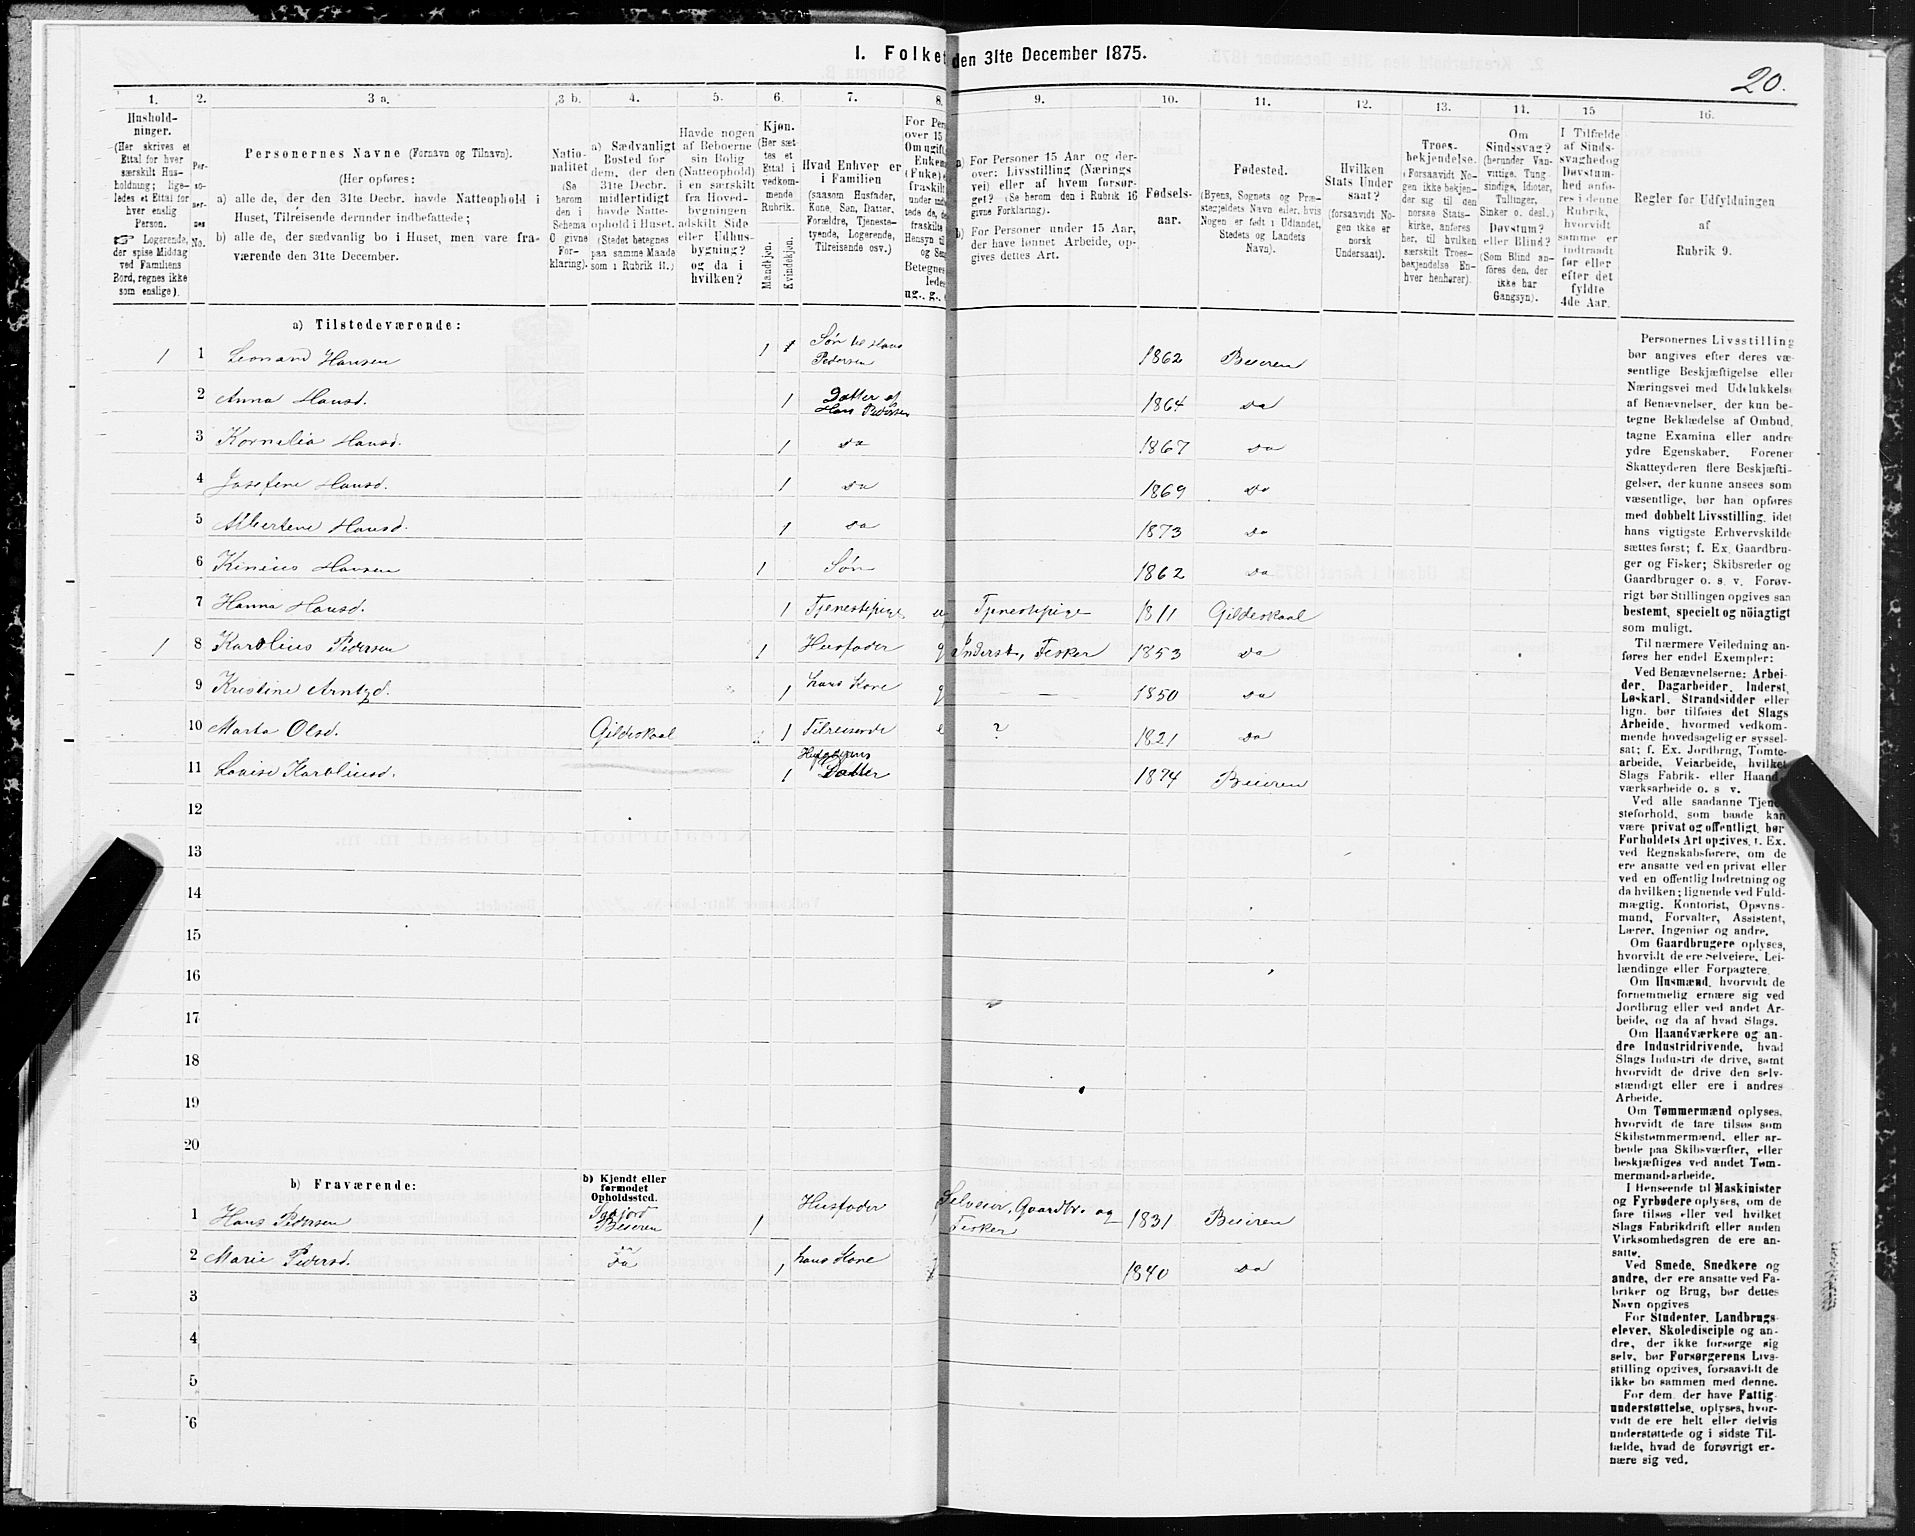 I. Folket den 31te December 1875.
20.
1.
Hushold-
ninger.
(Her skrives et
Ettal for hver
særskilt Hus-
holdning; lige-
ledes et Ettal for
hver enslig
Person.
☞ Logerende,
der spise Middag
ved Familiens
Bord, regnes ikke
som enslige).
2.
Per-
so-
ner-
nes
No.
3 a.
Personernes Navne (Fornavn og Tilnavn).
(Her opføres:
a) alle de, der den 31te Decbr. havde Natteophold i
Huset, Tilreisende derunder indbefattede;
b) alle de, der sædvanlig bo i Huset, men vare fra-
værende den 31te December.
3 b.
Natio-
nalitet
(Se
herom
den i
Schema
O givne
For-
klaring).
4.
a) Sædvanligt
Bosted for
dem, der den
31te Decbr.
midlertidigt
havde Natte-
ophold i Huset.
(Stedet betegnes
paa samme Maade
som i Rubrik 11.)
5.
Havde nogen
af Beboerne
sin Bolig
(Natteophold)
i en særskilt
fra Hoved-
bygningen
adskilt Side
eller Udhus-
bygning?
og da i
hvilken?
6.
Kjøn.
(Her sæt
tes et
Ettal i
vedkom-
mende
Rubrik.
Mandkjøn.
Kvindekjøn.
7.
Hvad Enhver er
i Familien
(saasom Husfader,
Kone, Søn, Datter,
Forældre, Tjeneste-
tyende, Logerende,
Tilreisende osv.)
8.
For Per
over 15
Om ugift,
Enkem
(Fuke)
fraskilt
under ind
tede de, d
fraskilte
Hensyn til
og Sen
Betegnes
ledes
ug., g.,
9.
a) For Personer 15 Aar og der-
over: Livsstilling (Nærings
vei) eller af hvem forsør-
get? (Se herom den i Rubrik 16
givne Forklaring).
b) For Personer under 15 Aar,
der have lønnet Arbeide, op-
gives dettes Art.
10.
Fødsels-
aar.
11.
Fødested.
(Byens, Sognets og Præ-
stegjeldets Navn eller, hvis
Nogen er født i Udlandet,
Stedets og Landets
Navn).
12.
Hvilken
Stats Under
saat?
(forsaavidt No-
gen ikke er
norsk
Undersaat).
13.
Troes-
bekjendelse.
(Forsaavidt No-
gen ikke bekjen-
der sig til den
norske Stats-
kirke, anføres
her, til hvilken
særskilt Troes-
bekjendelse En-
hver henhører).
14.
Om
Sindssvag?
(herunder Van-
vittige, Tung
sindige, Idioter,
Tullinger,
Sinker o. desl.)
Døvstum?
eller Blind?
(Som Blind an-
føres den, der
ikke har
Gangsyn).
15
I Tilfælde
af Sinds-
svaghedog
Døvstum-
hed anfø-
res i denne
Rubrik,
hvorvidt
samme er
indtraadt
før eller
efter det
fyldte
4de Aar.
16.
Regler for Udfyldningen
af
Rubrik 9.
a) Tilstedeværende:
1 1 Leonard Hansen 1 1 Søn til Hans Pedersen 1862 Beieren
2 Anna Hansd. 1 Datter af Hans Pedersen 1864 Do
3 Kornelia Hansd. 1 Do 1867 Do
4 Josefine Hansd. 1 Do 1869 Do
5 Albertine Hansd. 1 Do 1873 Do
6 Kinius Hansen 1 Søn 1862 Do
7 Hanna Hansd. 1 Tjenestepige Tjenestepige 1811 Gildeskaal
1 8 Karolius Pedersen 1 Husfader g Inderst, Fisker 1853 Do
9 Kristine Arntzd. 1 hans Kone g — 1850 Do
10 Marta Olsd. Gildeskaal 1 Tilreisende e ? 1821 Do
11 Lovise Karoliusd. 1 Datter 1874 Beieren
12
13
14
15
16
17
18
19
20
b) Fraværende:
b) Kjendt eller
formodet
Opholdssted.
1 Hans Pedersen Beieren 1 Husfader Selveier, Gaardbr. og Fisker 1831 Beieren
2 Marie Pedersd. Do 1 hans Kone 1840 Do
3
4
5
6
Personernes Livsstilling
bør angives efter deres væ-
sentlige Beskjæftigelse eller
Næringsvei med Udelukkelse
af Benævnelser, der kun be-
tegne Beklædelse af Ombud,
tagne Examina eller andre
ydre Egenskaber. Forener
Skatteyderen flere Beskjæfti-
gelser, der kunne ansees som
væsentlige, bør han opføres
med dobbelt Livsstilling, idet
hans vigtigste Erhvervskilde
sættes først; f. Ex. Gaardbru-
ger og Fisker; Skibsreder og
Gaardbruger o. s. v. Forøv-
rigt bør Stillingen opgives saa
bestemt, specielt og nöiagtigt
som muligt.
Til nærmere Veiledning an-
føres her endel Exempler:
Ved Benævnelserne: Arbei-
der, Dagarbeider, Inderst,
Løskarl, Strandsidder eller
lign. bør tilføies det Slags
Arbeide, hvormed vedkom-
mende hovedsagelig er syssel-
sat; f. Ex. Jordbrug, Tømte-
arbeide, Veiarbeide, hvilket
Slags Fabrik- eller Haand-
værksarbeide o. s v.
Ved alle saadanne Tjene-
steforhold, som baade kan
være privat og offentligt, bør
Forholdets Art opgives, f. Ex.
ved Regnskabsførere, om de
ere ansatte ved en privat eller
ved en offentlig Indretning og
da hvilken; lignende ved Fuld-
mægtig, Kontorist, Opsyns-
mand, Forvalter, Assistent,
Lærer, Ingeniør og andre.
Om Gaardbrugere oplyses,
hvorvidt de ere Selveiere, Lei-
lændinge eller Forpagtere.
Om Husmænd, hvorvidt de
fornemmelig ernære sig ved
Jordbrug eller ved andet Ar-
beide, og da af hvad Slags.
Om Haandværkere og an-
dre Industridrivende, hvad
Slags Industri de drive, samt
hvorvidt de drive den selv-
stændigt eller ere i andres
Arbeide.
Om Tømmermænd oplyses,
hvorvidt de fare tilsøs som
Skibstømmermænd, eller ar-
beide paa Skibsværfter, eller
beskjæftiges ved andet Tøm-
mermandsarbeide.
I Henseende til Maskinister
og Fyrbødere oplyses, om de
fare tilsøs eller ved hvilket
Slags Fabrikdrift eller anden
Virksomhedsgren de ere an-
satte.
Ved Smede, Snedkere og
andre, der ere ansatte ved Fa-
briker og Brug, bør dettes
Navn opgives
For Studenter, Landbrugs-
elever, Skoledisciple og an-
dre, der ikke forsørge sig
selv, bør Forsørgerens Livs-
stilling opgives, forsaavidt de
ikke bo sammen med denne.
For dem, der have Fattig-
understøttelse, oplyses, hvor-
vidt de ere helt eller delvis
understøttede og i sidste Til-
fælde, hvad de forøvrigt er-
nære sig ved.